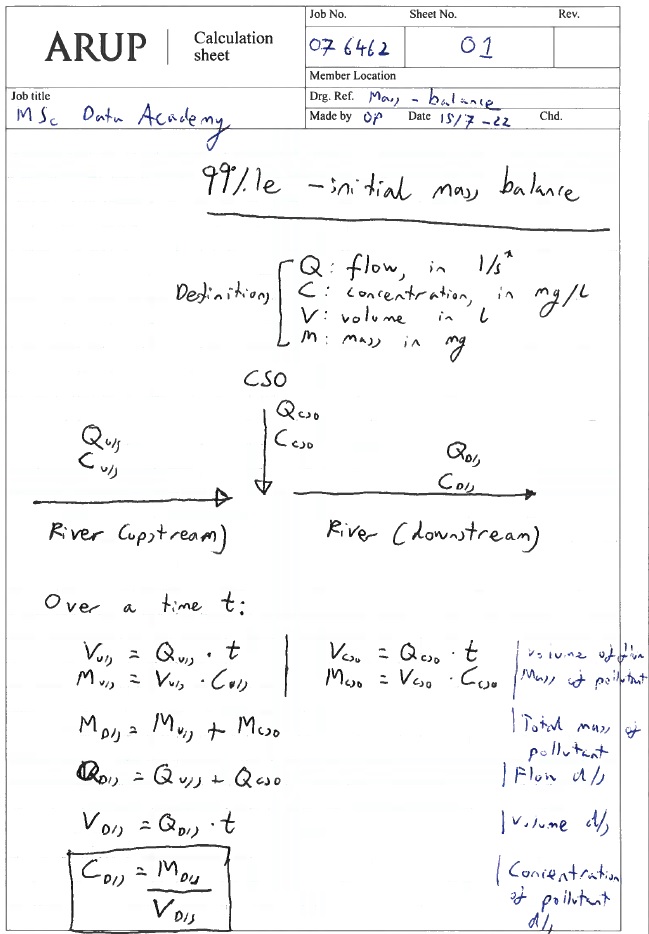 ARUP
Calculation
sheet
Job No.
Sheet No.
Rev.
076462
01
Member Location
Job title
MSc Data Academy
Drg. Ref. Mass - balance
Made by OP Date 15/7-22 Chd.
99%ile - initial mass balance
Definitions
Q: flow, in l/s*
C: concentration, in mg/L
V: volume in l
M: mass in mg
CSO
Qcso
Ccso
Qu/s
Cu/s
QD/s
CD/s
River (upstream)
River (downstream)
Over a time t:
Vu/s = Qu/s · t
Vcso = Qcso · t
volume of flow
Mu/s = Vu/s · Cu/s
Mcso = Vcso · Ccso
Mass of pollutant
MD/s = Mu/s + Mcso
Total mass of
pollutant
QD/s = Qu/s + Qcso
Flow d/s
VD/s = QD/s · t
volume d/s
CD/s = MD/s / VD/s
Concentration
of pollutant
d/s